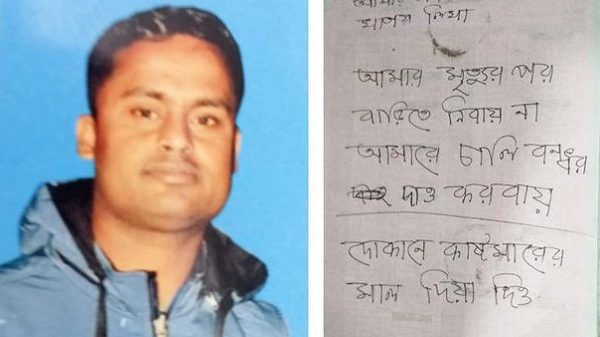 মাপর লিখা
আমার মৃত্যুর পর
বাড়িতে নিবায় না
আমারে চালি বন্দর
দাও করবায়
দোকানে কাষ্টমারের
মাল দিয়া দিও